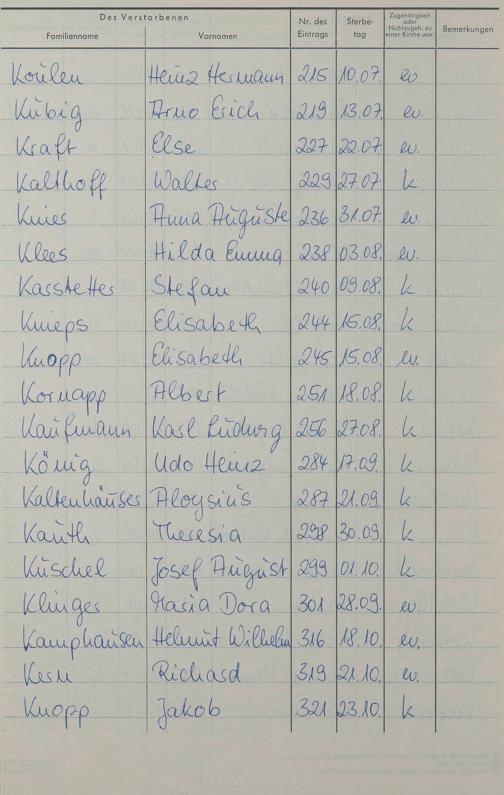 Des Verstorbenen
Familienname Vornamen Nr. des Eintrags Sterbetag Zugehörigkeit oder Nichtzugeh. zu einer Kirche usw. Bemerkungen
Koulen Heinz Hermann 215 10.07. ev.
Kubig Arno Erich 219 13.07. ev.
Kraft Else 227 22.07 ev.
Kalthoff Walter 229 27.07. k
Knies Anna Auguste 236 31.07. ev.
Klees Hilda Emma 238 03.08. ev.
Karstetter Stefan 240 09.08. k
Knieps Elisabeth 244 15.08. k
Knopp Elisabeth 245 15.08. ev.
Kornapp Albert 251 18.08. k
Kaufmann Karl Ludwig 256 27.08. k
König Udo Heinz 284 17.09. k
Kaltenhäuser Aloysius 287 21.09. k
Kauth Theresia 298 30.09. k
Kuschel Josef August 299 01.10. k
Klinger Maria Dora 301 28.09. ev.
Kamphausen Helmut Wilhelm 316 18.10. ev.
Kern Richard 319 21.10. ev.
Knopp Jakob 321 23.10. k